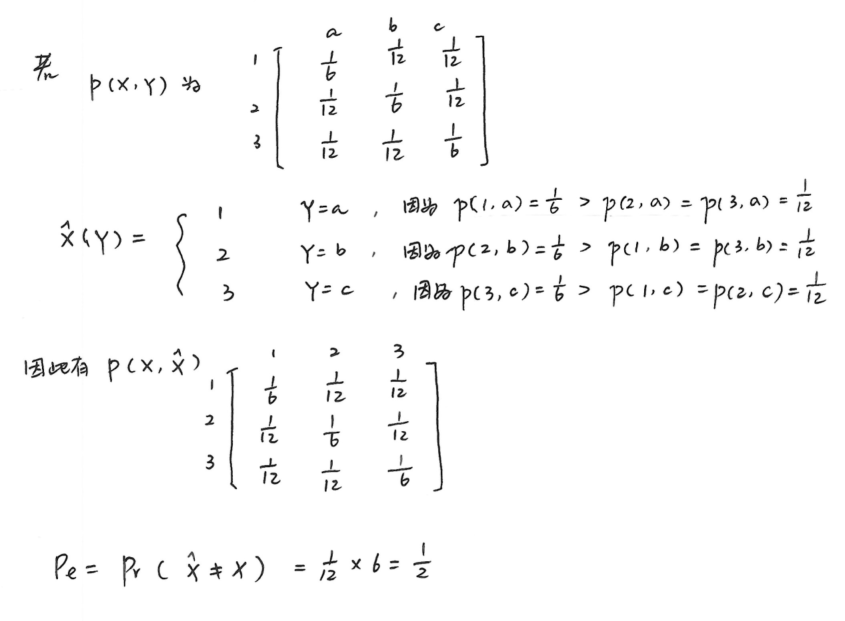 a b c
若 p(X,Y) 为 1 [ 1/6 1/12 1/12
2 1/12 1/6 1/12
3 1/12 1/12 1/6 ]
X̂(Y) = { 1 Y=a , 因为 p(1,a) = 1/6 > p(2,a) = p(3,a) = 1/12
2 Y=b , 因为 p(2,b) = 1/6 > p(1,b) = p(3,b) = 1/12
3 Y=c , 因为 p(3,c) = 1/6 > p(1,c) = p(2,c) = 1/12
1 2 3
因此有 p(X,X̂) 1 [ 1/6 1/12 1/12
2 1/12 1/6 1/12
3 1/12 1/12 1/6 ]
Pe = Pr ( X̂ ≠ X ) = 1/12 × 6 = 1/2